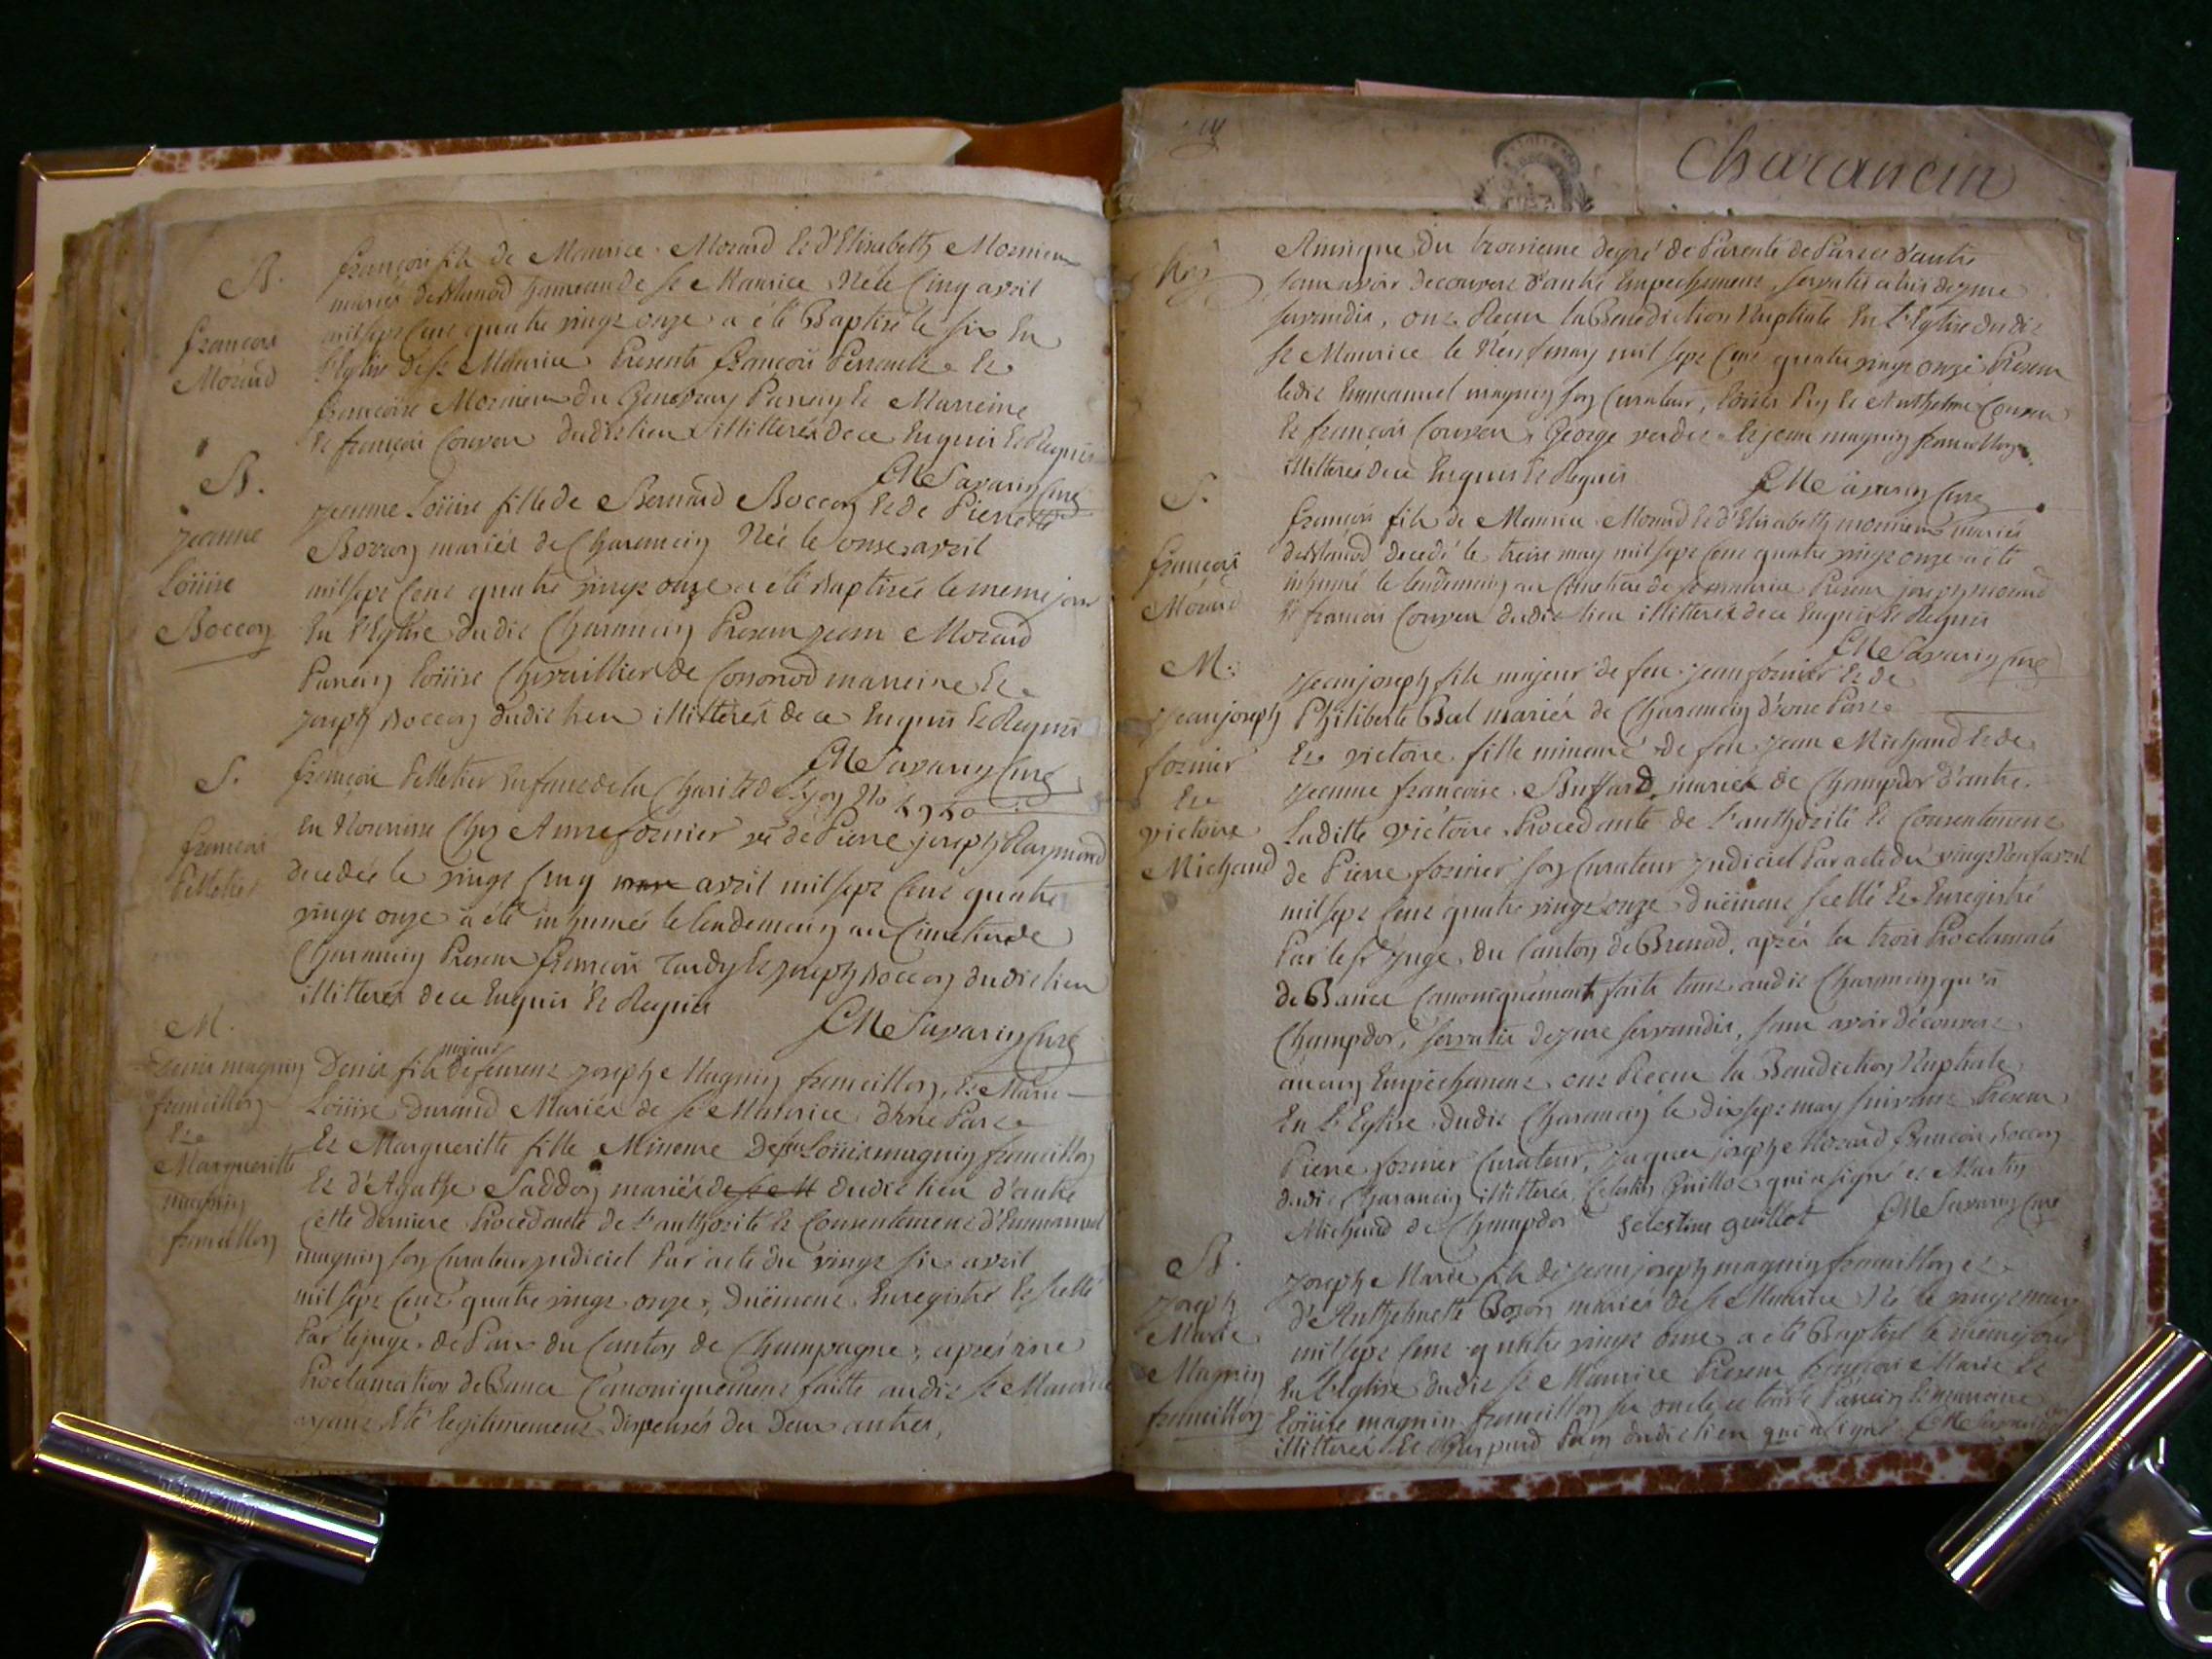 B.
françois
Morard
françois fils de Maurice Morard et d'Elisabeth Mornieux
mariés hameau de St Maurice Né le Cinq avril
mil sept Cent quatre vingt onze a été Baptisé le six En
l'Eglise de St Maurice Presents françois Perrault et
françoise Mornieux du Genevray Parrain et Marreine
et françois Couven dudit lieu illitterés de ce Enquis et Requis
CMe Savarin Curé
B.
jeanne
Loüise
Boccon
jeanne Loüise fille de Bernard Boccon et de Pierrette
Bozon mariés de Charancin Née le onze avril
mil sept Cent quatre vingt onze a été Baptisée le meme jour
En l'Eglise dudit Charancin Present jean Morard
Parrein Loüise Chevaillier de Cononod marreine et
joseph Boccon dudit lieu illitterés de ce Enquis et Requis
CMe Savarin Curé
S.
francois
Pelletier
françois Pelletier Enfant de la Charité de Lyon No
En Nourrisse Chez Anne fornier ve de Pierre joseph Raymond
decedée le vingt Cinq avril mil sept Cent quatre
vingt onze a été inhumée le lendemain au Cimetiere de
Charancin Present françois Tardy et joseph Boccon dudit lieu
illitterés de ce Enquis et Requis
CMe Savarin Curé
M.
Denis magnin
francillon
Et
Margueritte
magnin
francillon
majeur
Denis fils de feu joseph Magnin francillon, et Marie
Loüise Durand Mariés de St Maurice d'une Part
Et Margueritte fille Mineure De feu Loüis magnin francillon
Et d'Agathe Saddon mariés de St M dudit lieu d'autre
Cette derniere Procedante de l'authorité et Consentement d'Emmanuel
magnin son Curateur judiciel Par acte du vingt six avril
mil sept Cent quatre vingt onze, Duëment Enregistré et scellé
Par le juge de Paix du Canton de Champagne, après une
Proclamation de Bancs Canoniquement faitte audit St Maurice
ayant été legitimement dispensés des Deux autres,
Charancin
Ainsi que du troisieme degré de Parenté de Part et d'autre
sans avoir decouvert d'autre Empechement, servatis aliis de jure
servandis, ont Recu la Benediction Nuptiale En l'Eglise dudit
St Maurice le Neuf may mil sept Cent quatre vingt onze Present
ledit Emmanuel magnin son Curateur, Loüis Rey et Anthelme Couven
Et françois Couven, George verdet et jean magnin francillon
illitterés de ce Enquis et Requis
CMe Savarin Curé
S.
françois
Morard
françois fils de Maurice Morard et d'Elisabeth mornieux mariés
decedé le treize may mil sept Cent quatre vingt onze a été
inhumé le lendemain au Cimetiere de St maurice Present joseph morard
Et françois Couven dudit lieu illitterés de ce Enquis et Requis
CMe Savarin Curé
M.
jean joseph
fornier
Et
victoire
Michaud
jean joseph fils majeur de feu jean fornier Et de
Philiberte Bal mariés de Charancin d'une Part
Et victoire fille mineure de feu jean Michaud et de
jeanne francoise Buffard mariés de Champdor d'autre.
Laditte victoire Procedante de l'authorité et Consentement
de Pierre fornier son Curateur judiciel Par acte du vingt Neuf avril
mil sept Cent quatre vingt onze Duëment scellé et Enregistré
Par le Sr juge du Canton de Brenod, après les trois Proclamats
de Bancs Canoniquement faits tant audit Charancin qu'à
Champdor, servatis de jure servandis, sans avoir découvert
aucun Empechement ont Recu la Benediction Nuptiale
En l'Eglise dudit Charancin le dix sept may suivant Present
Pierre fornier Curateur, jaques joseph Morard françois Boccon
dudit Charancin illitterés Celestin Guillot qui a signé et Martin
Michaud de Champdor Selestin guillot CMe Savarin Curé
B.
Joseph
Marie
Magnin
francillon
Joseph Marie fils de jean joseph magnin francillon et
d'Anthelmette Bozon mariés de St Maurice Né le vingt may
mil sept Cent quatre vingt onze a été Baptisé le même jour
En l'Eglise dudit St Maurice Present françois Marie Et
Loüise magnin francillon ses oncle et tante Parrein et marraine
illitterés et Gaspard dudit lieu qui a signé CMe Savarin